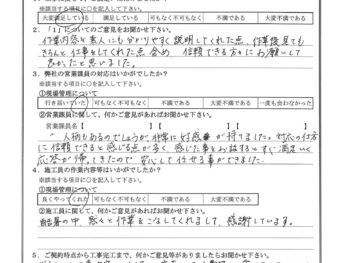 ※該当する項目に○を記入して下さい。
大変満足している　満足している　可もなく不可もなく　不満である　大変不満である
2. 「1」についてのご意見をお聞かせ下さい。
作業内容を素人にも分かりやすく説明してくれた点、作業後見ても
きちんと仕事をしてくれた点含め、信頼できる方々にお願いして
良かったと思いました。
3. 弊社の営業課員の対応はいかがでしたか?
※該当する項目に○を記入して下さい。
①現場管理について
行き届いていた　可もなく不可もなく　不満である　大変不満である　一度も会わなかった
②営業課員に関して、何かご意見があればお聞かせ下さい。
営業課員名【　】【　】【　】
人柄もあるのでしょうが、非常に好感が持てました。対応の仕方
に信頼できると感じる点が多く、感じた事をお話するとすぐ満足いく
応答が帰ってきたので安心して任せる事ができました。
4. 施工員の作業内容等はいかがでしたか?
※該当する項目に○を記入して下さい。
①現場管理について
良くやってくれた　可もなく不可もなく　不満である　大変不満である
②施工員に関して、何かご意見があればお聞かせ下さい。
の中、黙々と作業をこなしてくれまして、感謝しています。
5. ご契約時点から工事完了まで、何かご意見等がありましたらお聞かせ下さい。